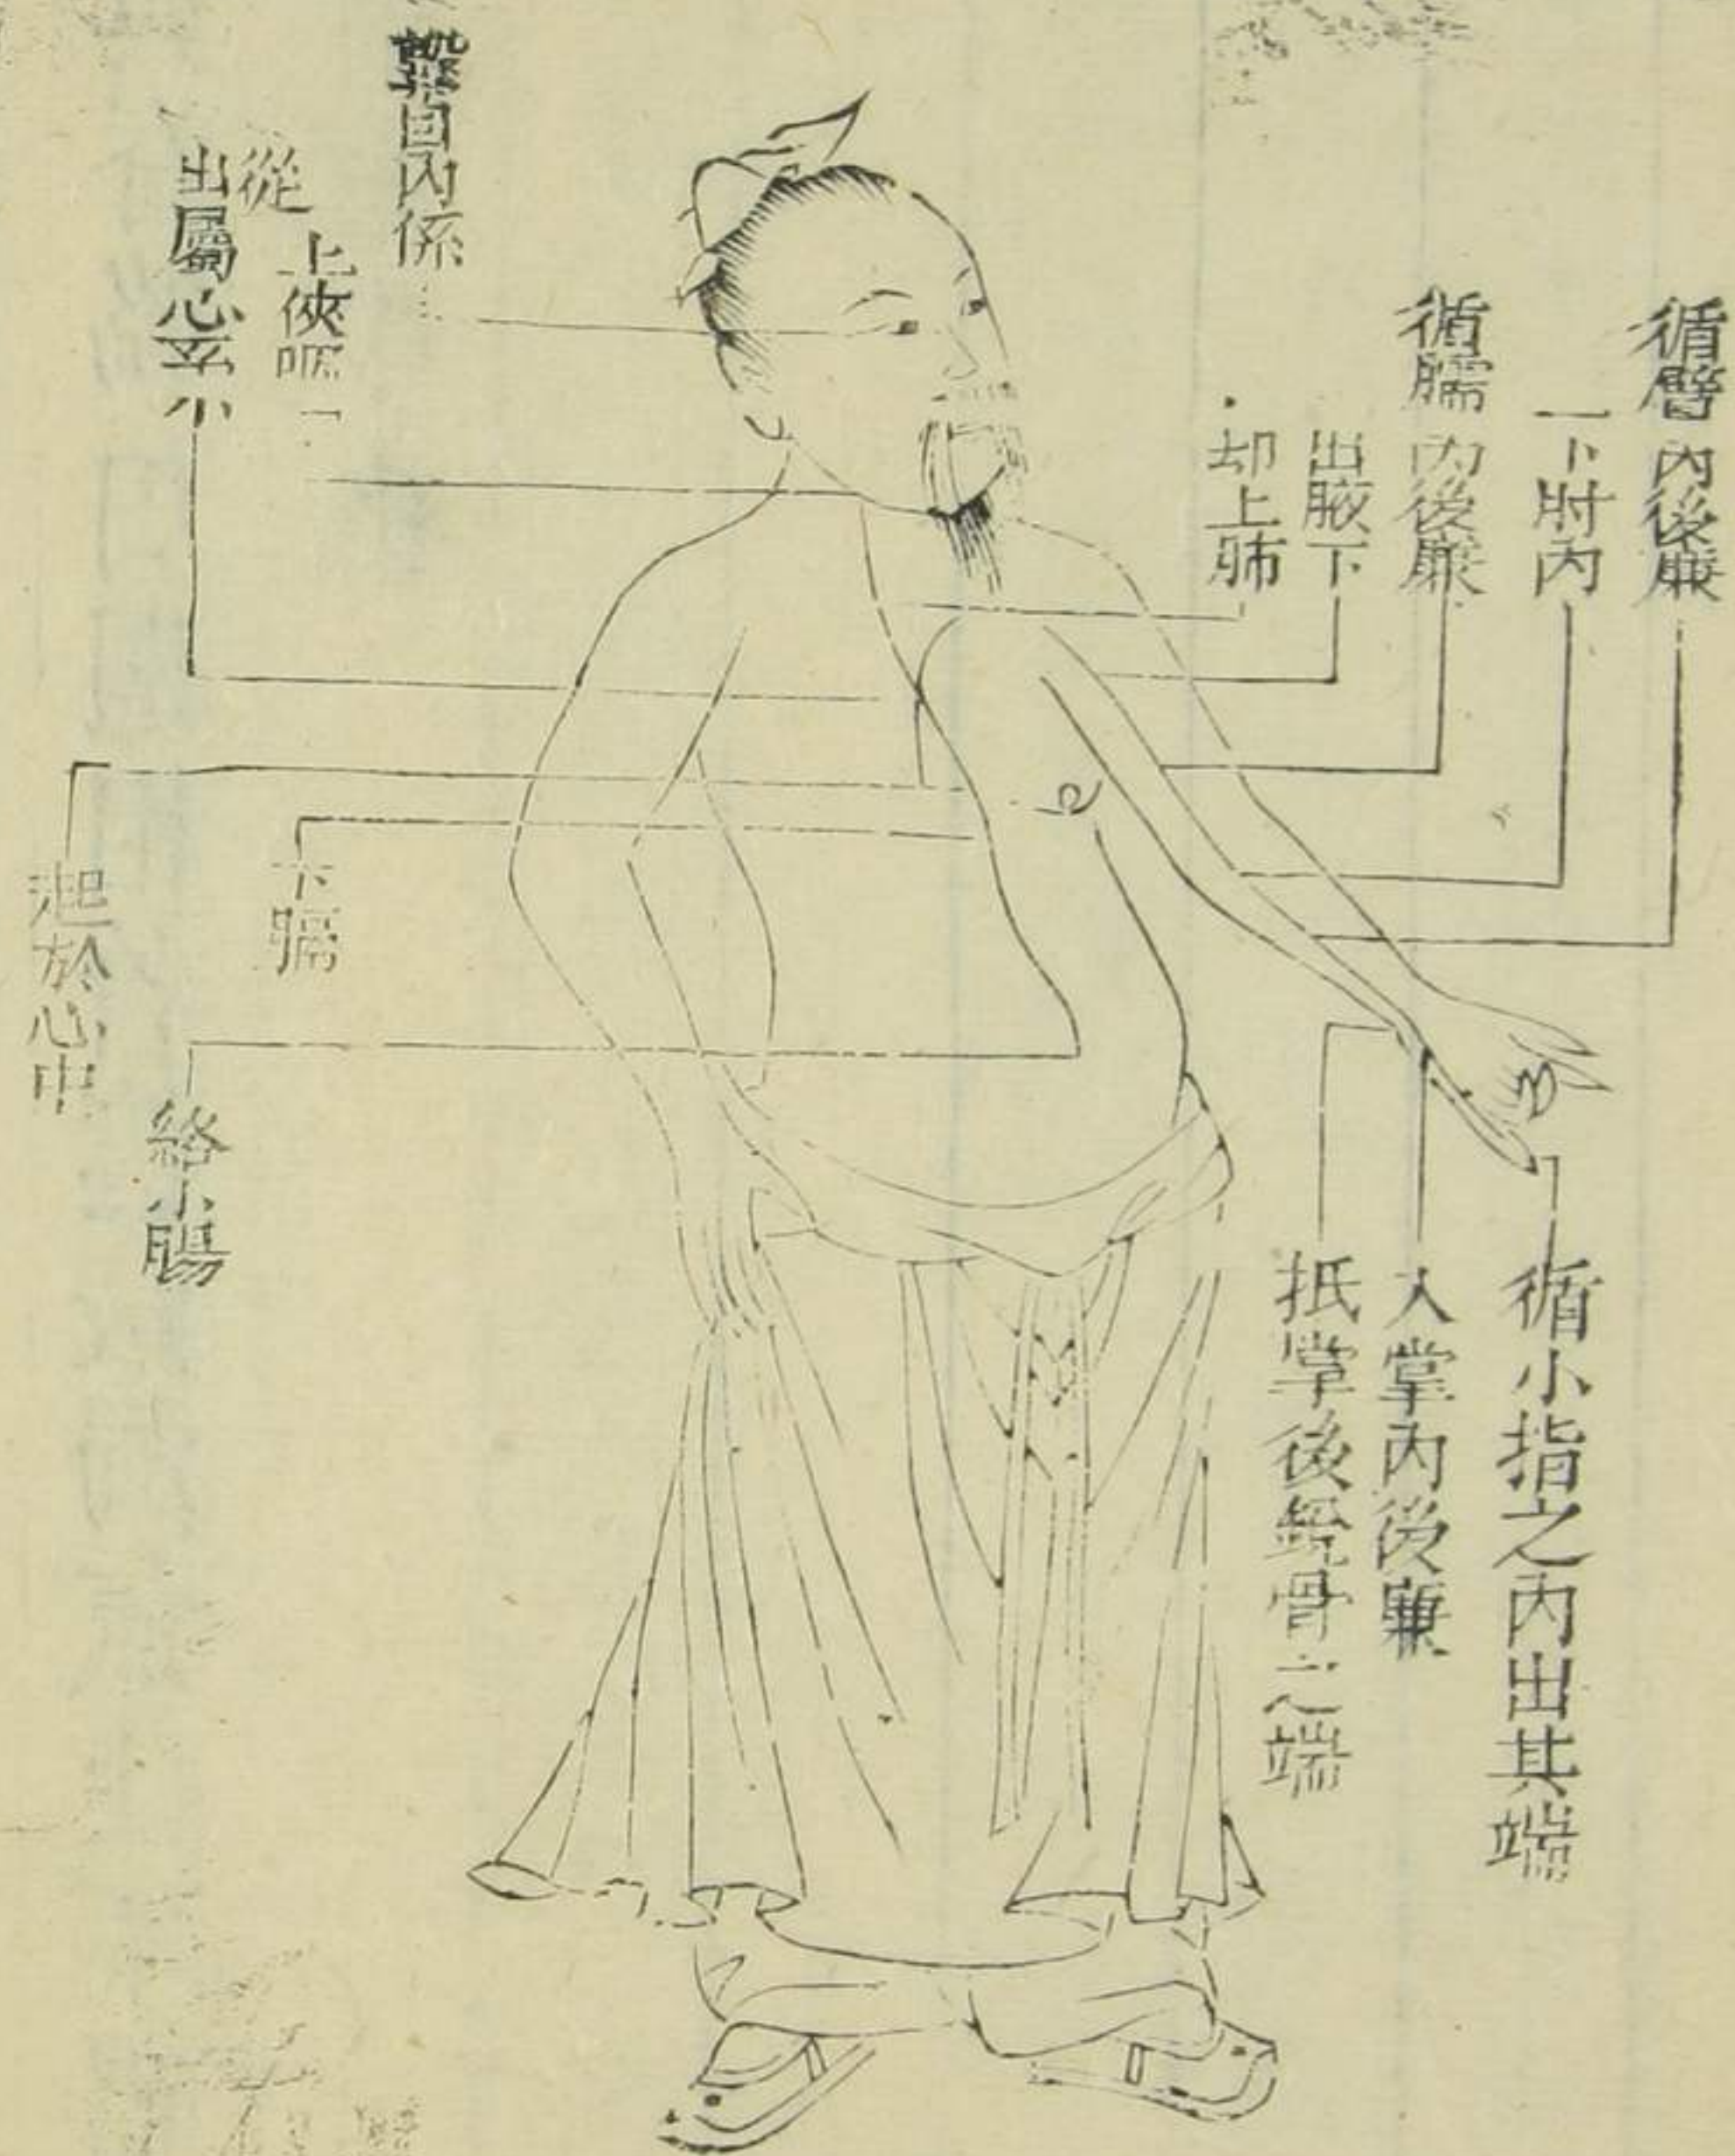 循臂內後廉
下肘內
循臑內後廉
出腋下
却上肺
內係
上俠
從
出屬心
下膈
起於心中
絡小腸
循小指之內出其端
入掌內後廉
抵掌後銳骨之端